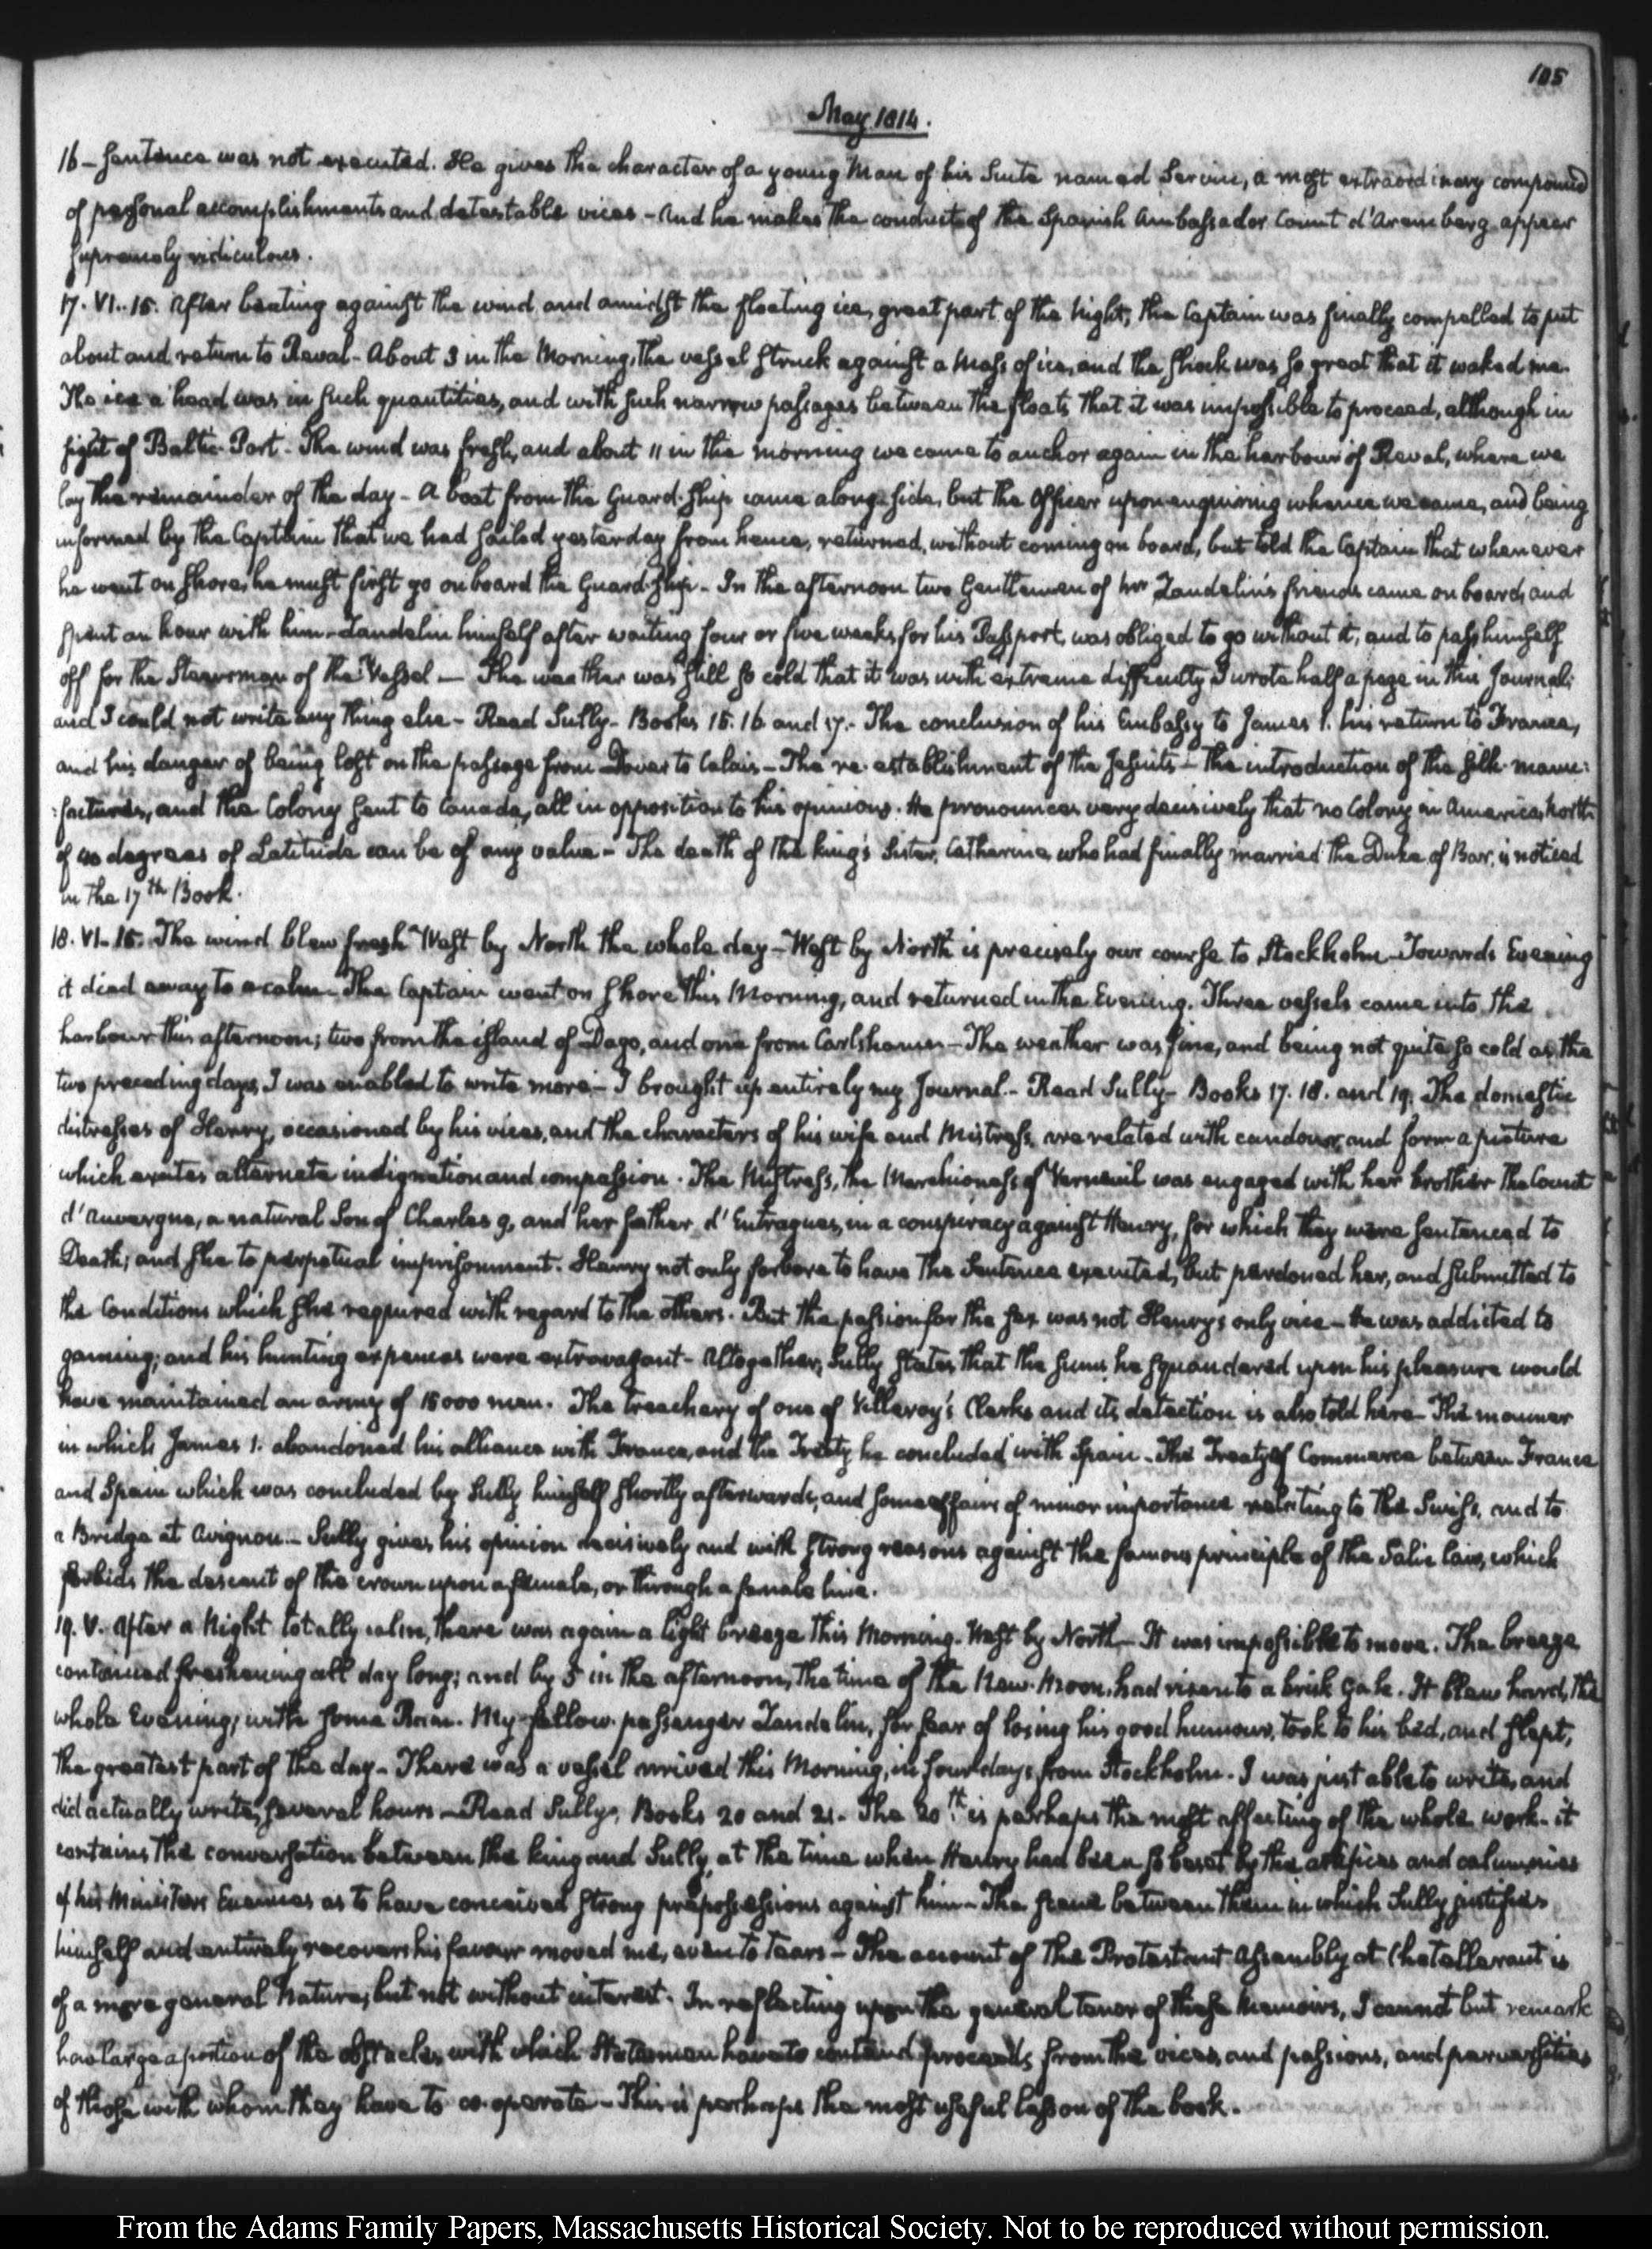 105
May 1814.
16 — Sentence was not executed. He gives the character of a young Man of his Suite named Servin, a most extraordinary compound
of personal accomplishments and detestable vices — And he makes the conduct of the Spanish Ambassador Count d'Aremberg appear
supremely ridiculous.
17. VI. 15. After beating against the wind and amidst the floating ice, great part of the Night, the Captain was finally compelled to put
about and return to Reval — About 3 in the Morning, the vessel struck against a mass of ice, and the shock was so great that it waked me.
The ice a'head was in such quantities, and with such narrow passages between the floats that it was impossible to proceed, although in
sight of Baltic-Port. The wind was fresh, and about 11 in the morning we came to anchor again in the harbour of Reval, where we
lay the remainder of the day — A boat from the Guard-Ship came along-side, but the Officer upon enquiring whence we came, and being
informed by the Captain that we had sailed yesterday from hence, returned, without coming on board, but told the Captain that whenever
he went on shore, he must first go on board the Guard-Ship — In the afternoon two Gentlemen of Mr Zandelin's friends came on board, and
spent an hour with him — Zandelin himself after waiting four or five weeks for his Passport, was obliged to go without it; and to pass himself
off for the Steersman of the Vessel — The weather was still so cold that it was with extreme difficulty I wrote half a page in this Journal;
and I could not write any thing else — Read Sully — Books 15. 16 and 17. — The conclusion of his Embassy to James 1. his return to France,
and his danger of being lost on the passage from Dover to Calais — The re-establishment of the Jesuits — the introduction of the silk-manu:
:factures, and the Colony sent to Canada, all in opposition to his opinions. He pronounces very decisively that no Colony in America, North
of 40 degrees of Latitude can be of any value — The death of the king's Sister, Catharine, who had finally married the Duke of Bar, is noticed
in the 17th Book.
18. VI. 15. The wind blew fresh West by North the whole day — West by North is precisely our course to Stockholm — Towards Evening
it died away to a calm — The Captain went on shore this Morning, and returned in the Evening. Three vessels came into the
harbour this afternoon; two from the island of Dago, and one from Carlshamn — The weather was fine, and being not quite so cold as the
two preceding days, I was enabled to write more — I brought up entirely my Journal. — Read Sully — Books 17. 18. and 19. The domestic
distresses of Henry, occasioned by his vices, and the characters of his wife and Mistress, are related with candour, and form a picture
which excites alternate indignation and compassion. The Mistress, the Marchioness of Verneuil was engaged with her brother the Count
d'Auvergne, a natural Son of Charles 9, and her father, d'Entragues, in a conspiracy against Henry, for which they were sentenced to
Death; and she to perpetual imprisonment. Henry not only forbore to have the Sentence executed, but pardoned her, and submitted to
the Conditions which she required with regard to the others. But the passion for the sex was not Henry's only vice — He was addicted to
gaming; and his hunting expences were extravagant — Altogether, Sully states, that the sums he squandered upon his pleasure would
have maintained an army of 15000 men. The treachery of one of Villeroy's Clerks and its detection is also told here — The manner
in which James 1. abandoned his alliance with France, and the Treaty he concluded with Spain — The Treaty of Commerce between France
and Spain which was concluded by Sully himself shortly afterwards; and some affairs of minor importance relating to the Swiss, and to
a Bridge at Avignon — Sully gives his opinion decisively and with strong reasons against the famous principle of the Salic law, which
forbids the descent of the crown upon a female, or through a female line.
19. V. After a Night totally calm, there was again a light breeze this Morning. West by North — It was impossible to move. The breeze
continued freshening all day long; and by 5 in the afternoon, the time of the New-Moon, had risen to a brisk Gale. It blew hard, the
whole Evening; with some Rain. My fellow-passenger Zandelin, for fear of losing his good humour, took to his bed, and slept,
the greatest part of the day — There was a vessel arrived this Morning, in four days from Stockholm. I was just able to write, and
did actually write, several hours — Read Sully, Books 20 and 21. The 20th is perhaps the most affecting of the whole work — it
contains the conversation between the king and Sully, at the time when Henry had been so beset by the artifices and calumnies
of his Ministers Enemies as to have conceived strong prepossessions against him — The scene between them in which Sully justifies
himself and entirely recovers his favour moved me, even to tears — The account of the Protestant Assembly at Chatellerault is
of a more general Nature, but not without interest. In reflecting upon the general tenor of these Memoirs, I cannot but remark
how large a portion of the obstacles with which Statesmen have to contend proceeds from the vices, and passions, and perversities
of those with whom they have to co-operate — This is perhaps the most useful lesson of the book.
From the Adams Family Papers, Massachusetts Historical Society. Not to be reproduced without permission.